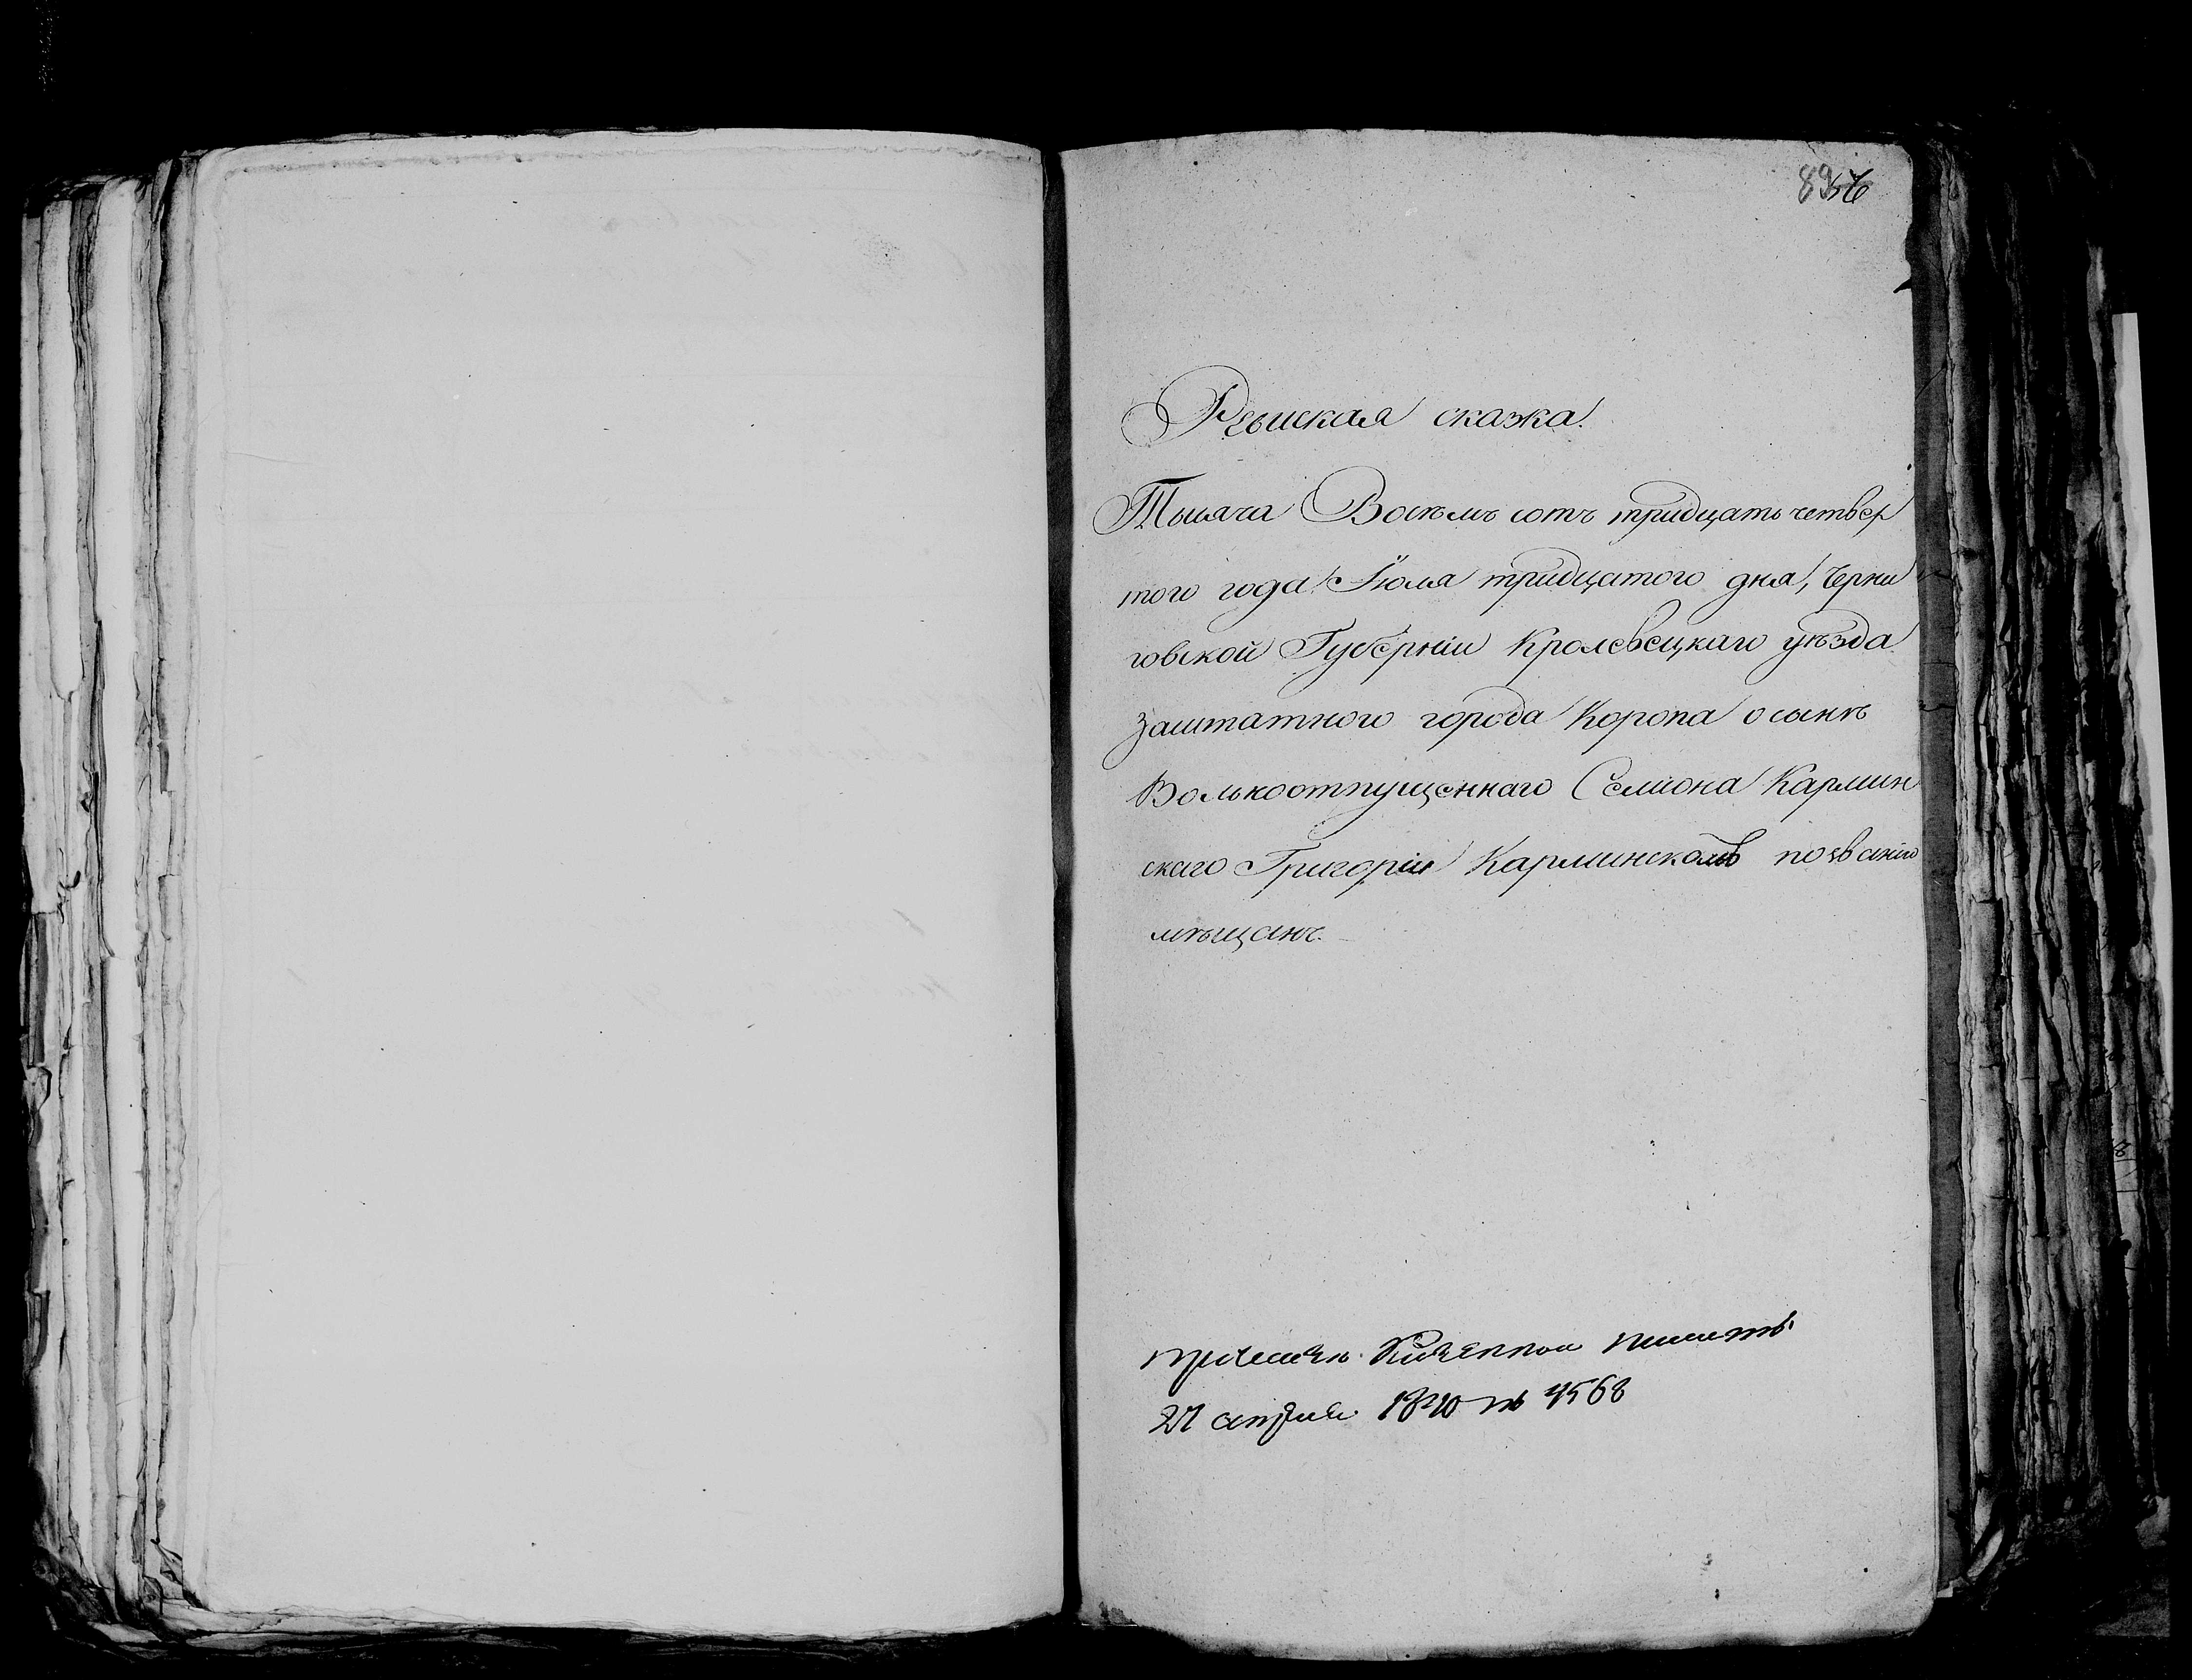 89
Ревиская сказка.
Тысяча Восемь сотъ тридцать четвер
того года Іюля тридцатого дня, Черни
говской Губерніи Кролевецкаго уѣзда
заштатного города Коропа о сынѣ
Вольноотпущеннаго Семиона Кармин
скаго Григоріи Карминскомъ позванію
мѣщанъ.
Казенной
27 апреля 1840 № 4568